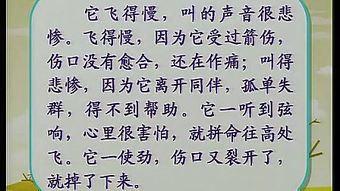 它飞得慢，叫的声音很悲
惨。飞得慢，因为它受过箭伤，
伤口没有愈合，还在作痛；叫得
悲惨，因为它离开同伴，孤单失
群，得不到帮助。它一听到弦
响，心里很害怕，就拼命往高处
飞。它一使劲，伤口又裂开了，
就掉了下来。